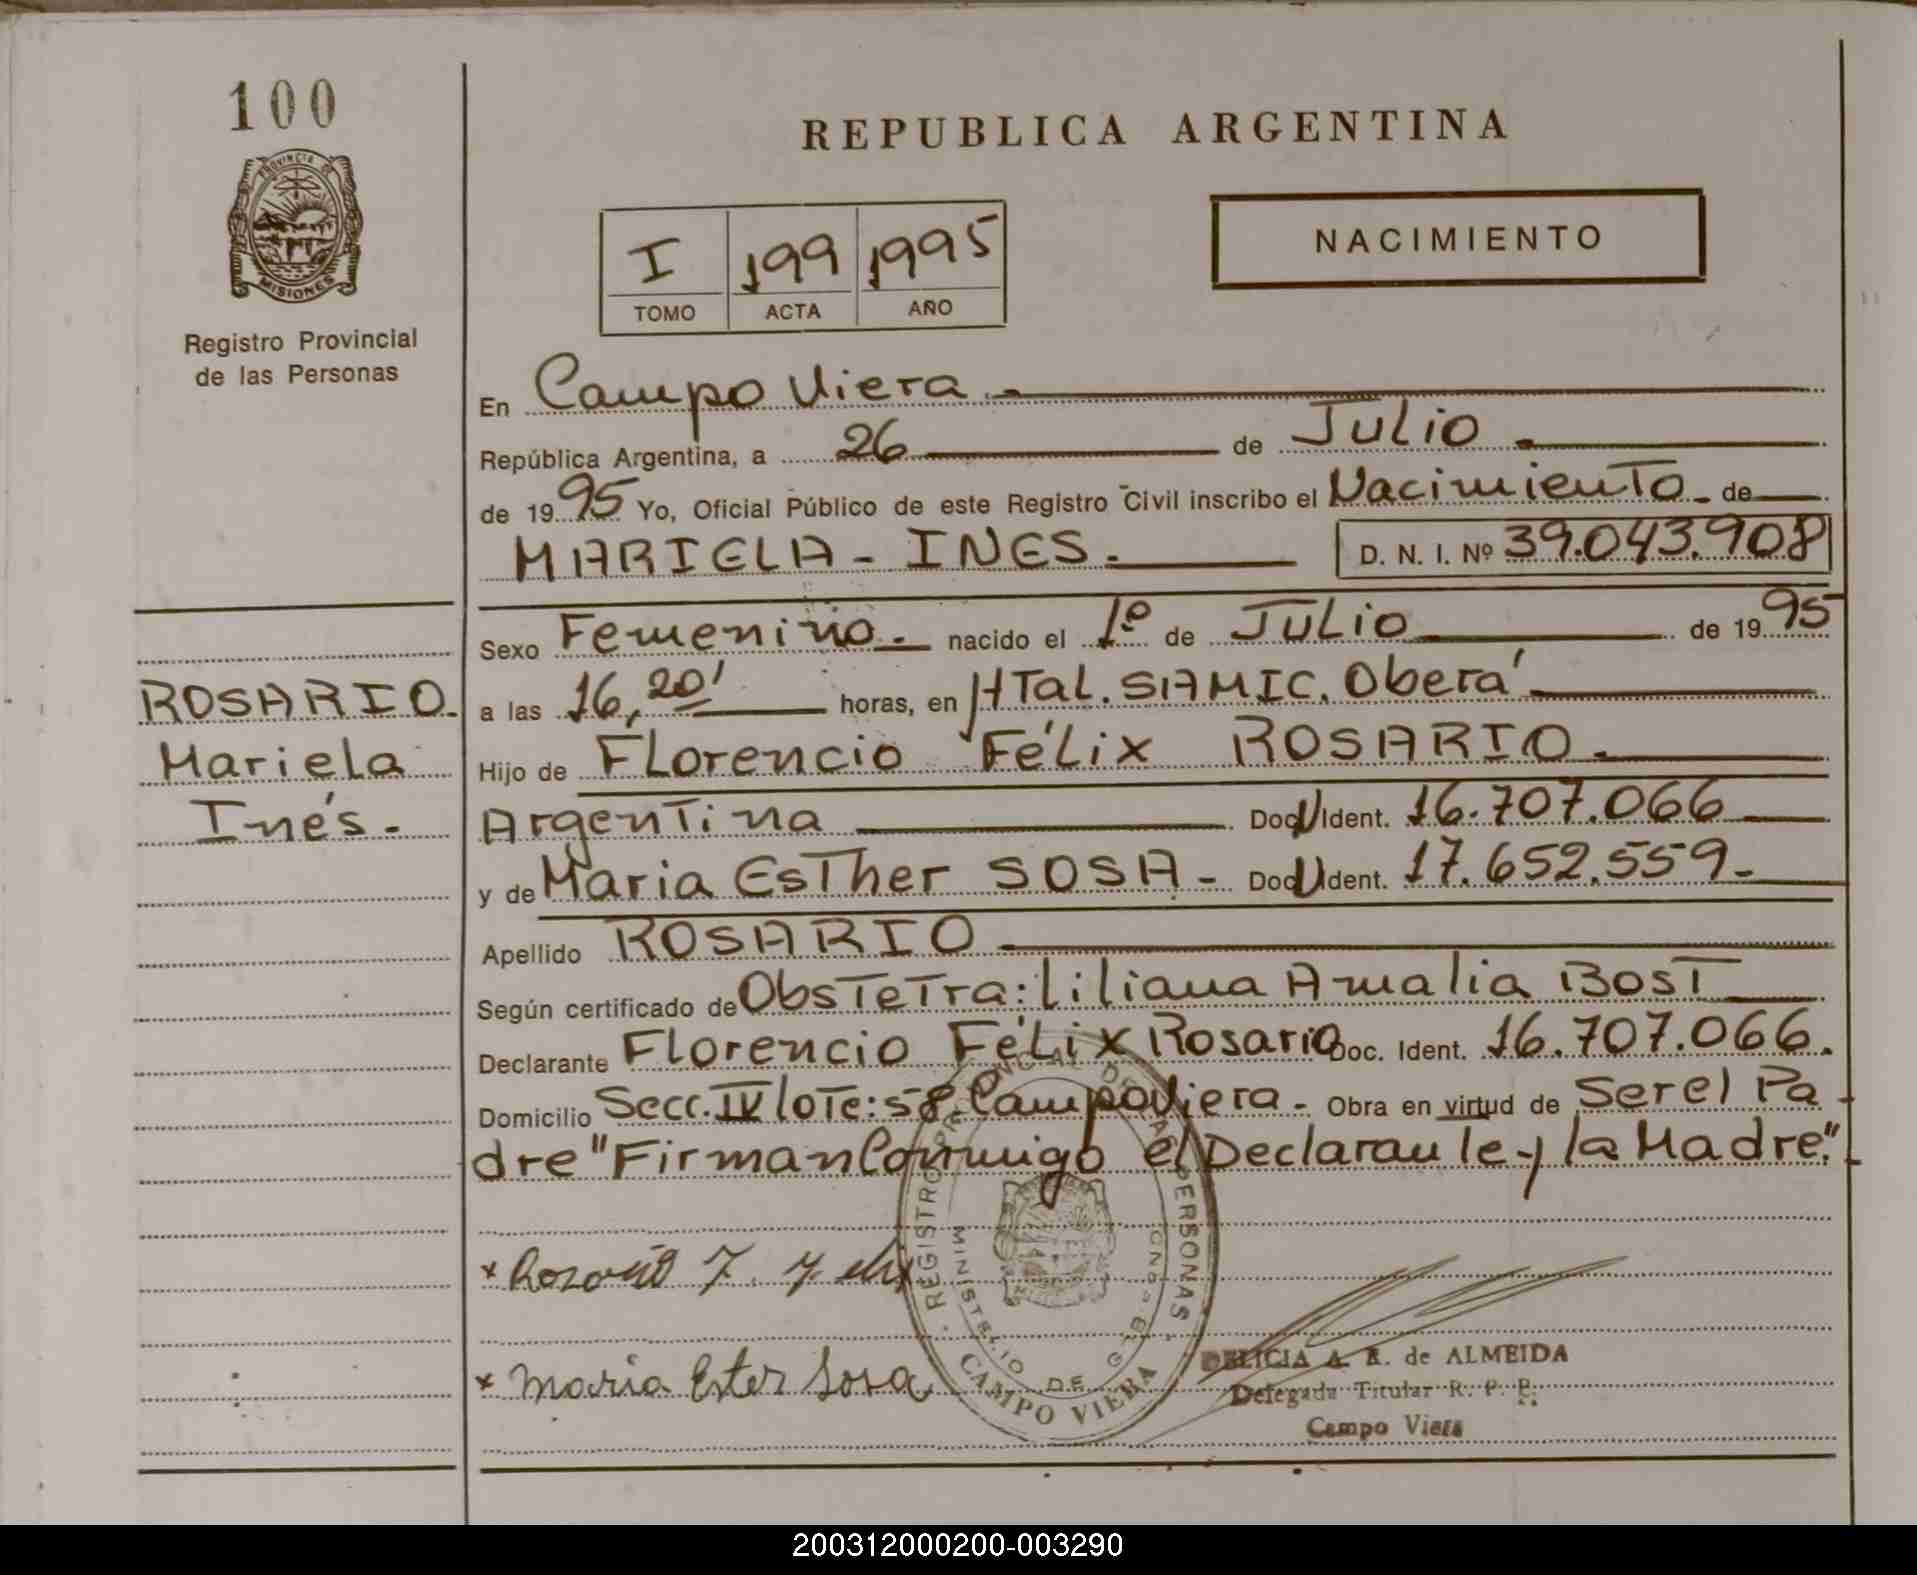 100
PROVINCIA DE
MISIONES
Registro Provincial
de las Personas
REPUBLICA ARGENTINA
I 199 1995
TOMO ACTA AÑO
NACIMIENTO
En Campo Viera
República Argentina, a 26 de Julio
de 1995 Yo, Oficial Público de este Registro Civil inscribo el Nacimiento de
MARIELA - INES. D. N. I. Nº 39.043.908
Sexo Femenino. nacido el 1º de Julio de 1995
a las 16,20' horas, en HTal. SAMIC. Oberá
Hijo de Florencio Félix ROSARIO.
Argentina Doc U Ident. 16.707.066
y de Maria Esther SOSA - Doc U Ident. 17.652.559-
Apellido ROSARIO
Según certificado de Obstetra: Liliana Amalia Bost
Declarante Florencio Félix Rosario Doc. Ident. 16.707.066.
Domicilio Secc. IV lote: 58. Campo Viera. Obra en virtud de Ser el Pa-
dre "Firman Conmigo el Declarante y la Madre".
ROSARIO.
Mariela
Inés.
x Rosario F.
x Maria Ester Sosa
REGISTRO PROVINCIAL DE LAS PERSONAS
MINISTERIO DE GOB
CAMPO VIERA
DELICIA A. R. de ALMEIDA
Delegada Titular R. P. P.
Campo Viera
200312000200-003290